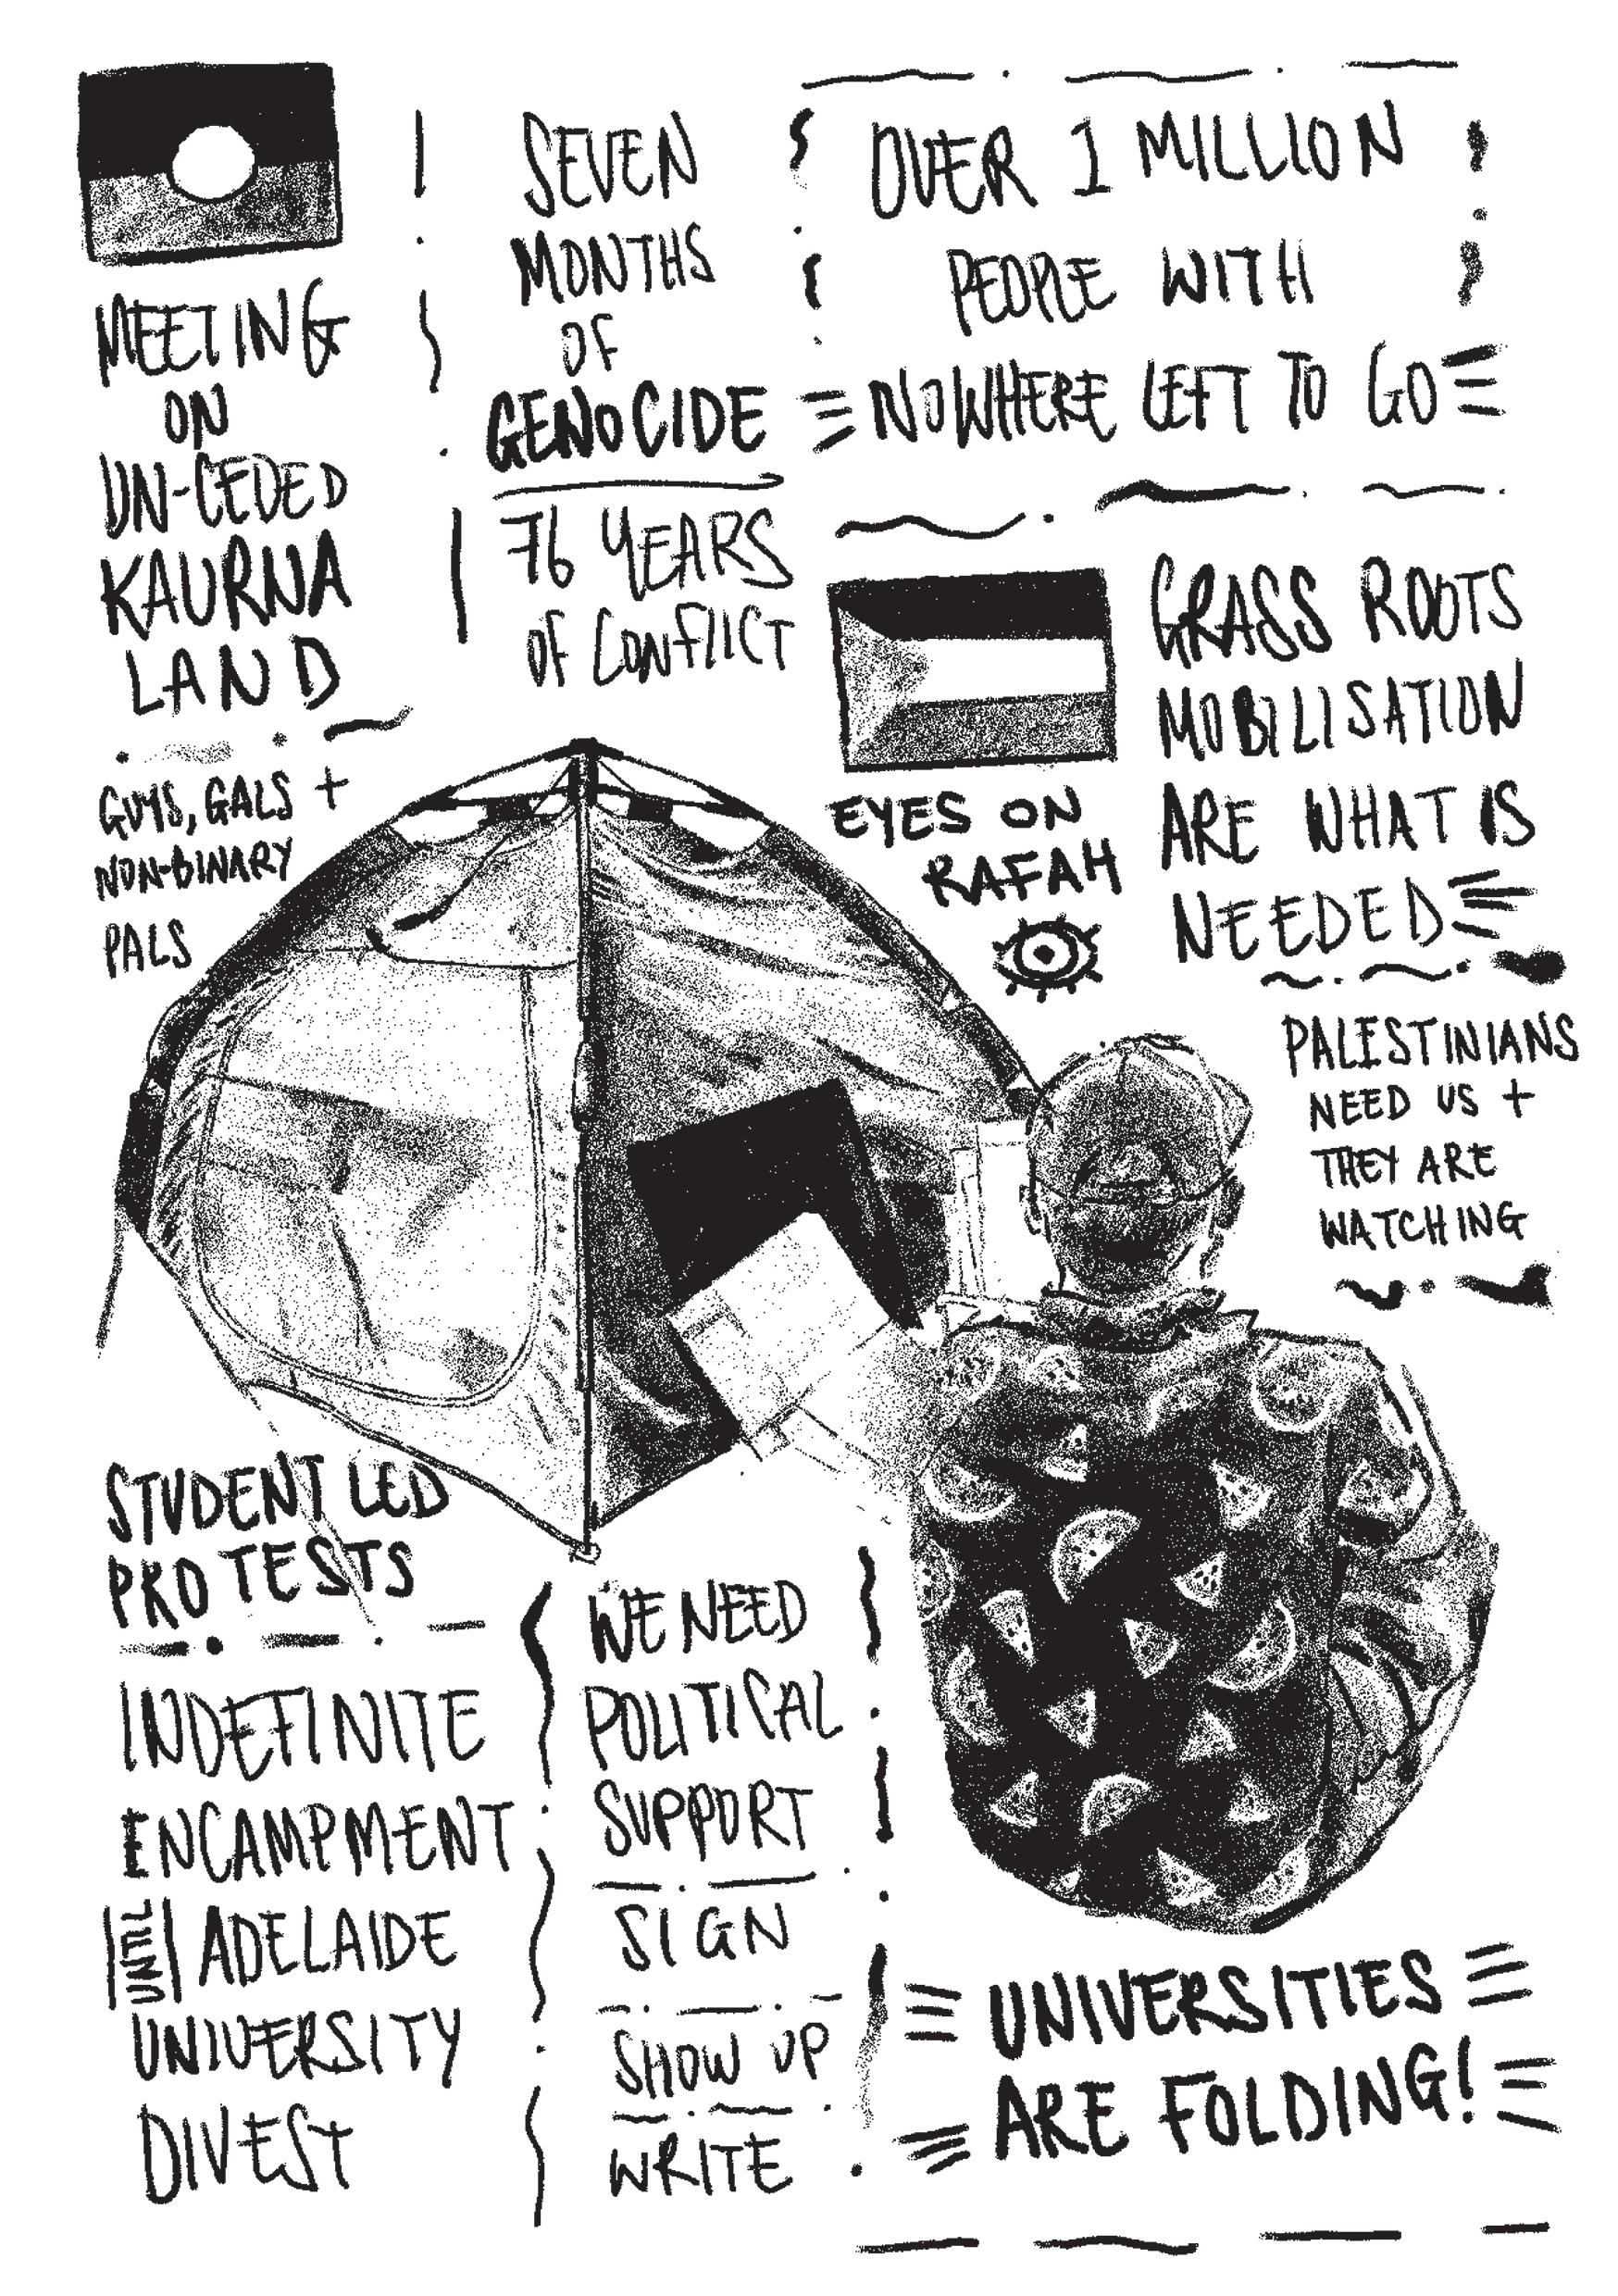 MEETING
ON
UN-CEDED
KAURNA
LAND
GUYS, GALS +
NON-BINARY
PALS
SEVEN
MONTHS
OF
GENOCIDE
76 YEARS
OF CONFLICT
OVER 1 MILLION
PEOPLE WITH
NOWHERE LEFT TO GO
EYES ON
RAFAH
GRASS ROOTS
MOBILISATION
ARE WHAT IS
NEEDED
PALESTINIANS
NEED US +
THEY ARE
WATCHING
STUDENT LED
PROTESTS
INDEFINITE
ENCAMPMENT
UNTIL ADELAIDE
UNIVERSITY
DIVEST
WE NEED
POLITICAL
SUPPORT
SIGN
SHOW UP
WRITE
UNIVERSITIES
ARE FOLDING!